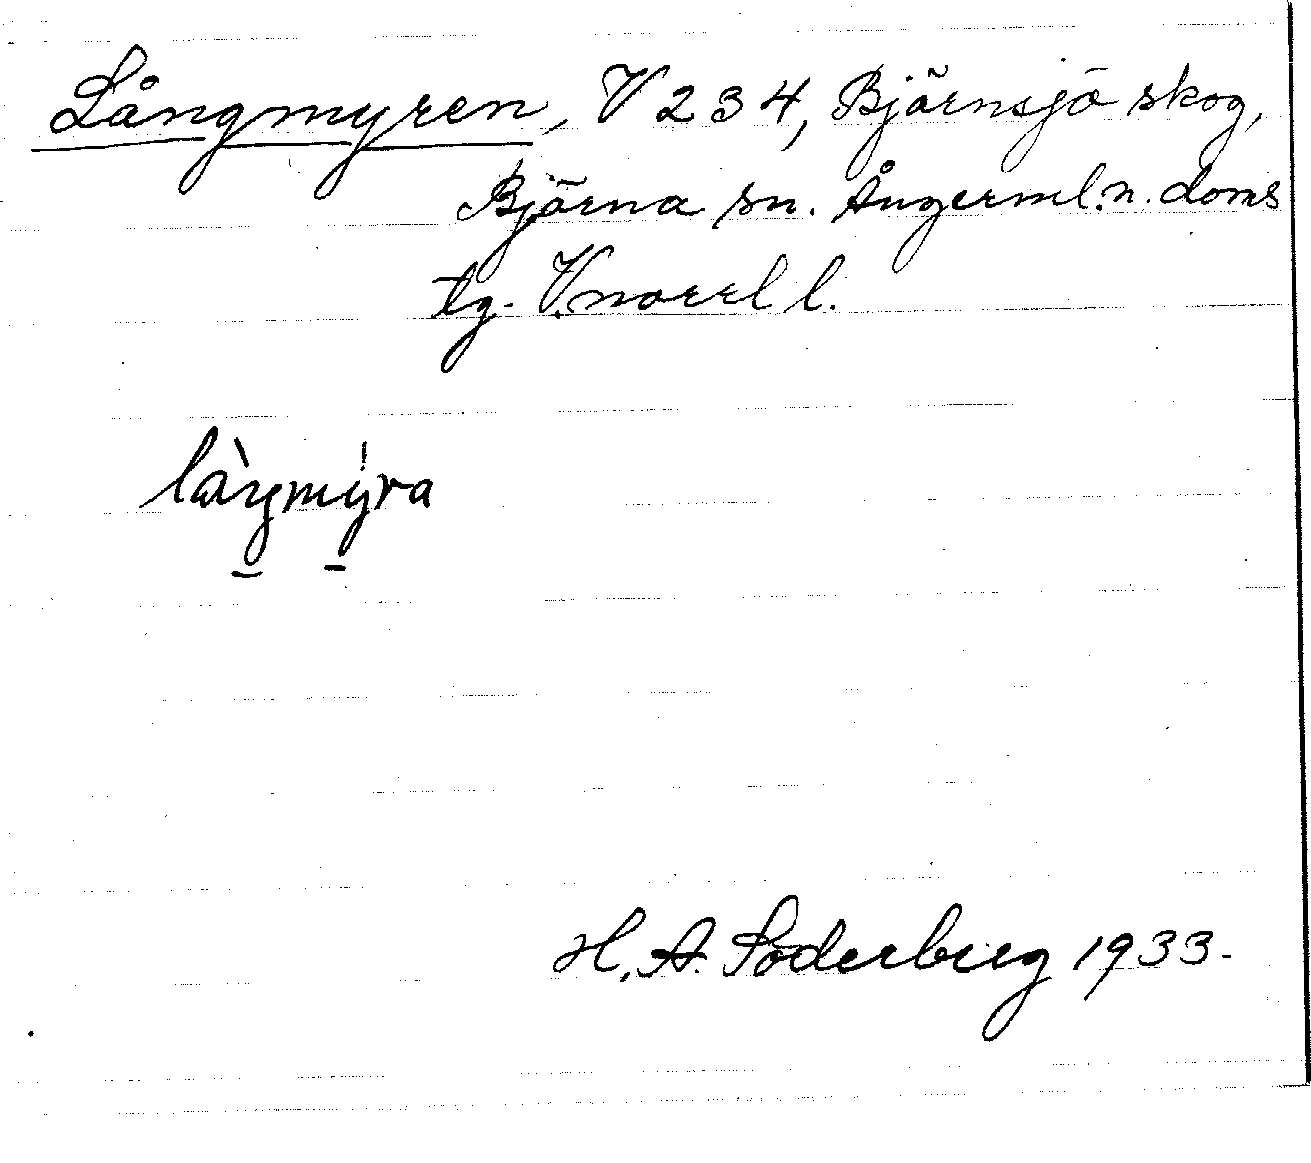 Långmyren, V 234, Björnsjö skog,
Björna sn. Ångerml:n. doms
tg. V.norrl l.
làŋmy̍ra
H. A. Söderberg 1933.